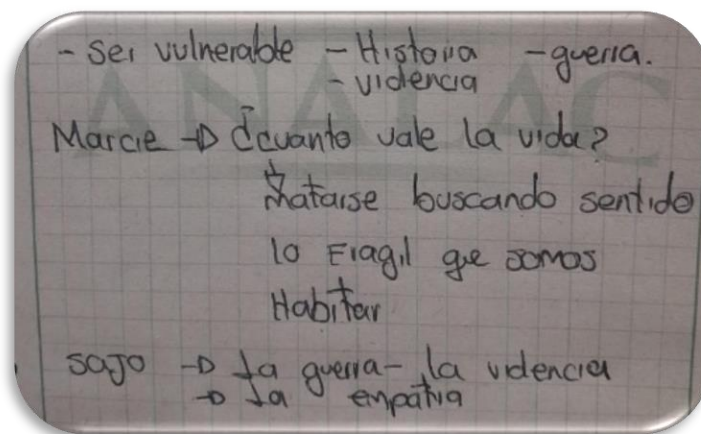 - Ser vulnerable - Historia - guerra.
- violencia
ANALAC
Marcie → ¿cuanto vale la vida?
Matarse buscando sentido
lo Fragil que somos
Habitar
sajo → la guerra - la violencia
→ la empatia